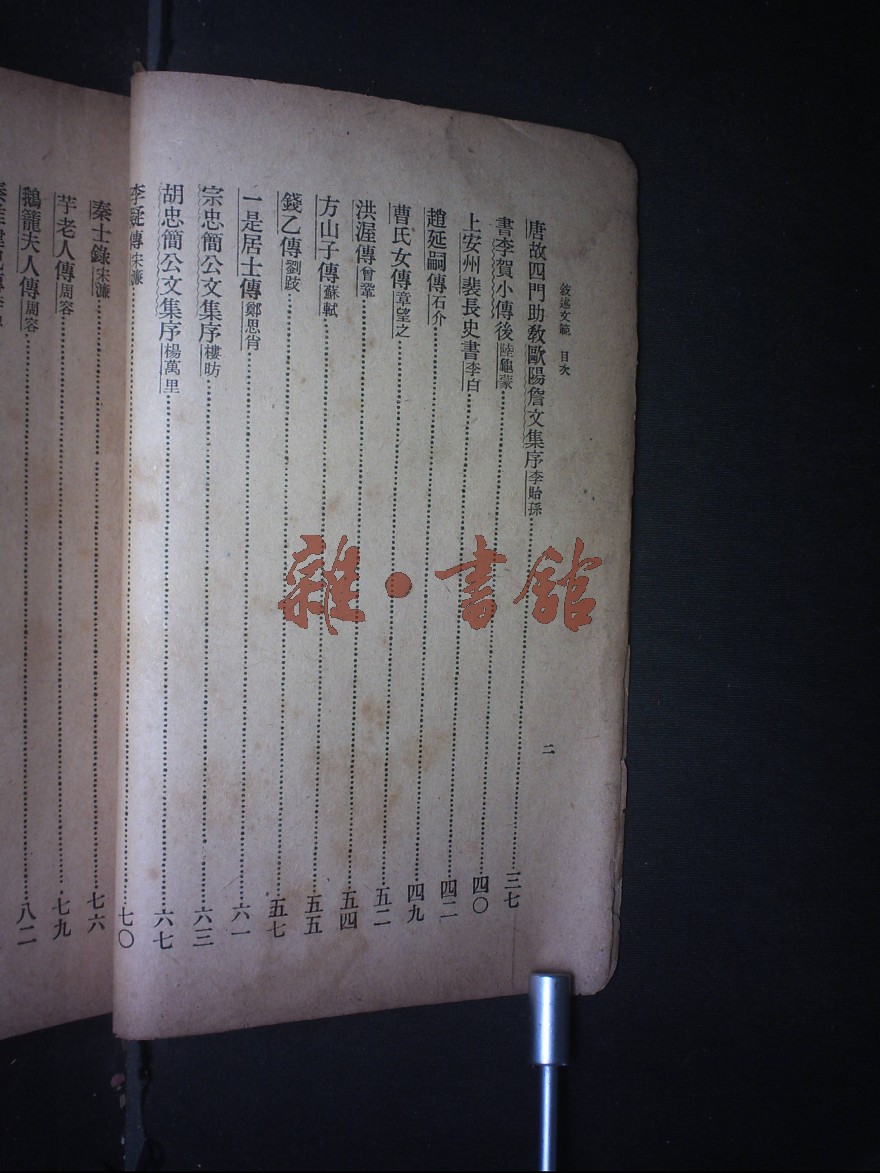 敍述文範　目次
二
唐故四門助教歐陽詹文集序李貽孫……三七
書李賀小傳後陸龜蒙……四〇
上安州裴長史書李白……四二
趙延嗣傳石介……四九
曹氏女傳章望之……五二
洪渥傳曾鞏……五四
方山子傳蘇軾……五五
錢乙傳劉跂……五七
一是居士傳鄭思肖……六一
宗忠簡公文集序樓昉……六三
胡忠簡公文集序楊萬里……六七
李疑傳宋濂……七〇
秦士錄宋濂……七六
芋老人傳周容……七九
鵝籠夫人傳周容……八二
雜·書舘